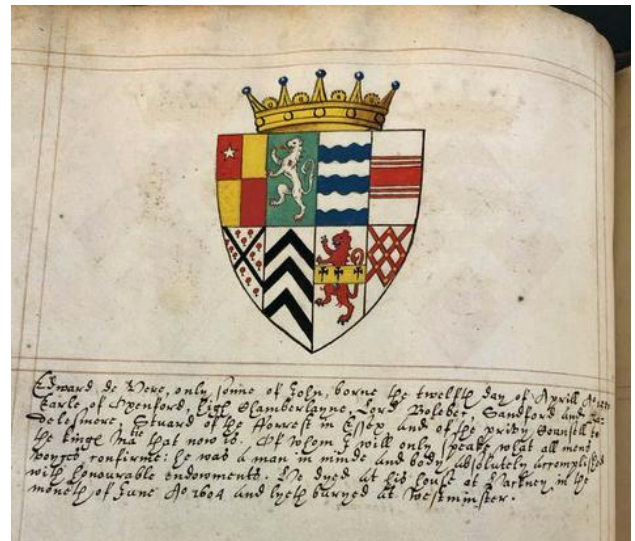 Edward de Vere, only sonne of John, borne the twelfth day of Aprill Ao
Earle of Oxenford, High Chamberlayne, Lord Bolebec, Sandford and Ba-
delesmere, Stuard of the Forrest in Essex, and of the privy Counsell to
the kings Matie that now is. Of whom I will only speake what all mens
voyces confirme: he was a man in minde and body absolutely accomplished
with honourable endowments. He dyed at his house at Hackney in the
moneth of June Ao 1604 and lyeth buryed at Westminster.